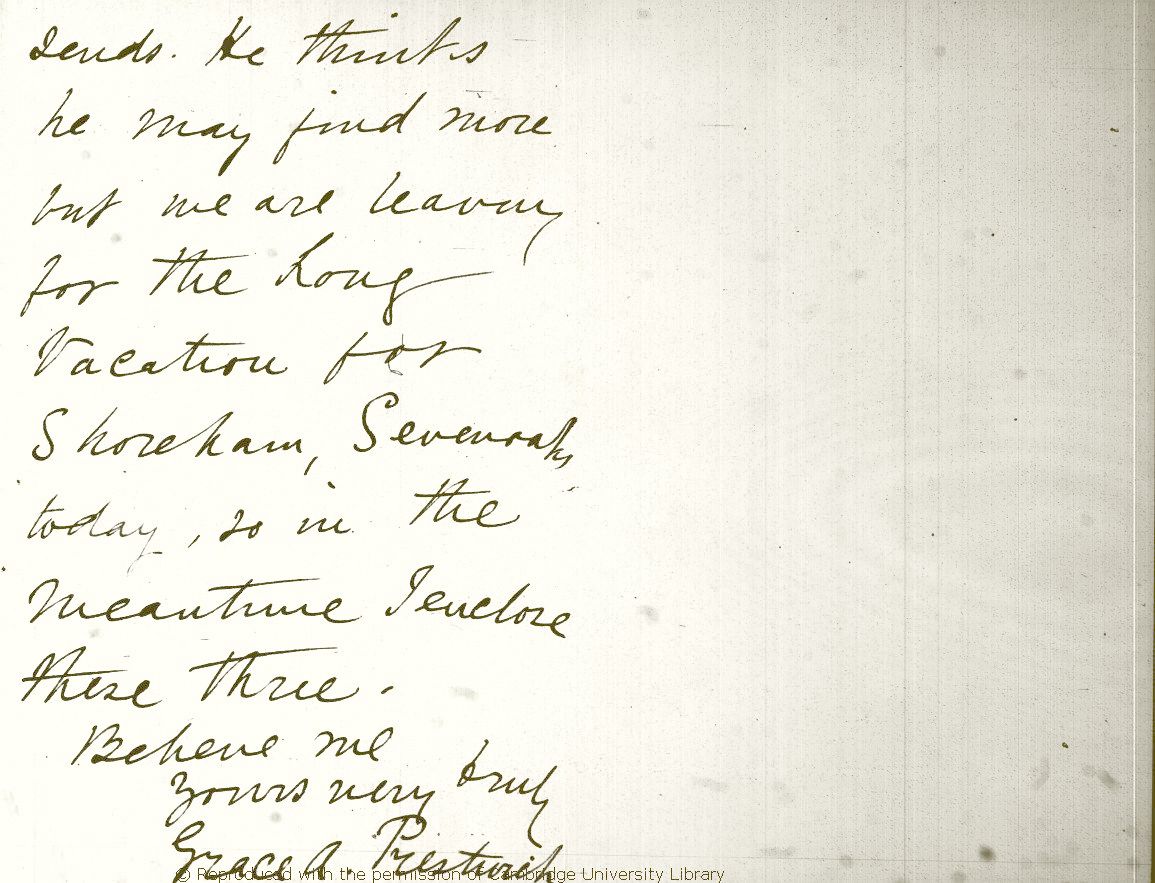 sends. He thinks
he may find more
but we are leaving
for the Long
Vacation for
Shoreham, Sevenoaks,
today, so in the
meantime I enclose
these three.
Believe me
yours very truly
Grace A. Prestwich
© Reproduced with the permission of Cambridge University Library